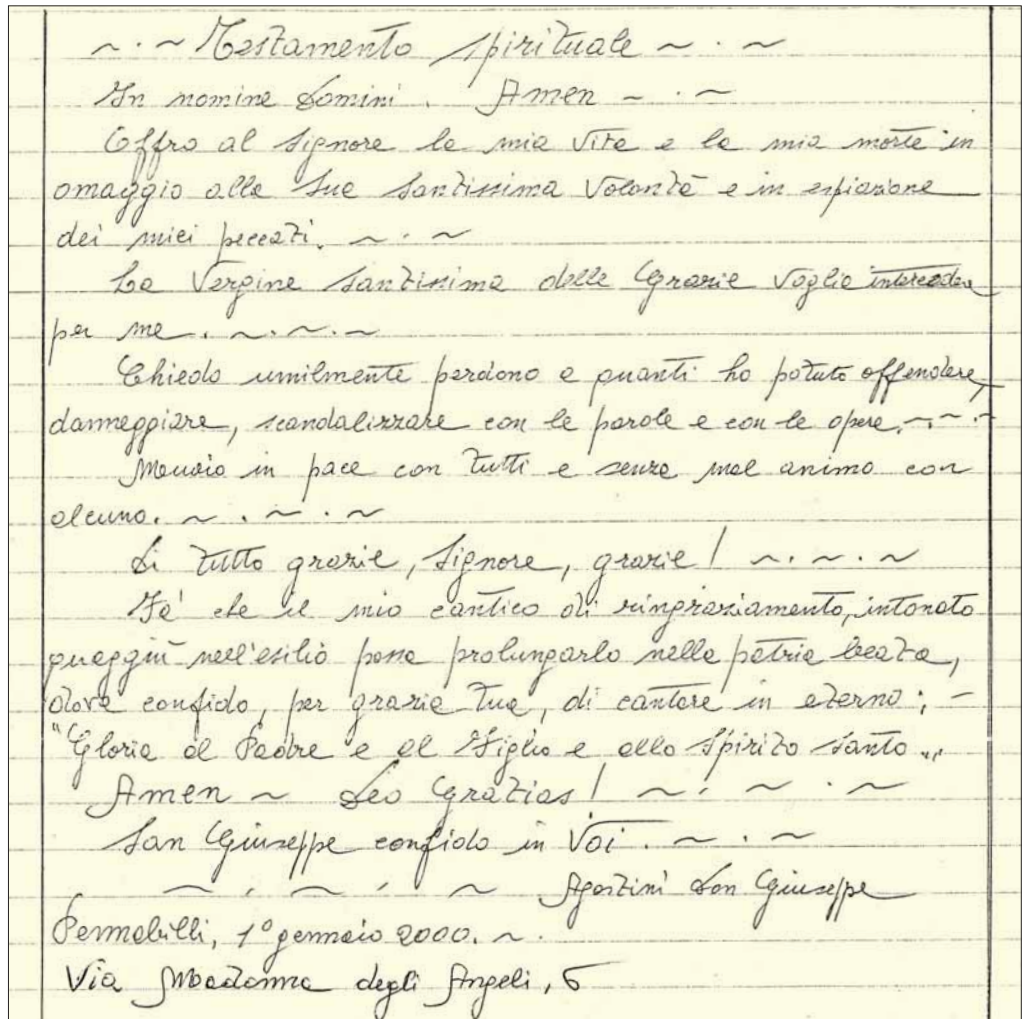 ~ . ~ Testamento spirituale ~ . ~
In nomine Domini . Amen ~ . ~
Offro al Signore la mia vita e la mia morte in
omaggio alla Sua Santissima Volontà e in espiazione
dei miei peccati. ~ . ~
La Vergine Santissima delle Grazie voglia intercedere
per me. ~ . ~ . ~
Chiedo umilmente perdono a quanti ho potuto offendere,
danneggiare, scandalizzare con le parole e con le opere. ~ . ~ .
Muoio in pace con tutti e senza mal animo con
alcuno. ~ . ~ . ~
Di tutto grazie, Signore, grazie! ~ . ~ . ~
Fa' che il mio cantico di ringraziamento, intonato
quaggiù nell'esilio possa prolungarlo nella patria beata,
dove confido, per grazia Tua, di cantare in eterno: -
"Gloria al Padre e al Figlio e allo Spirito Santo..."
Amen ~ Deo Gratias! ~ . ~ . ~
San Giuseppe confido in Voi. ~ . ~
~ . ~ . ~ Agostini Don Giuseppe
Pennabilli, 1° gennaio 2000. ~ .
Via Madonna degli Angeli, 5